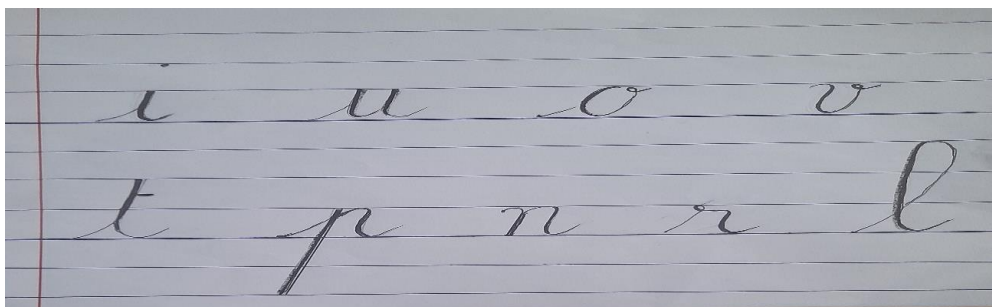 i u o v
t p n r l